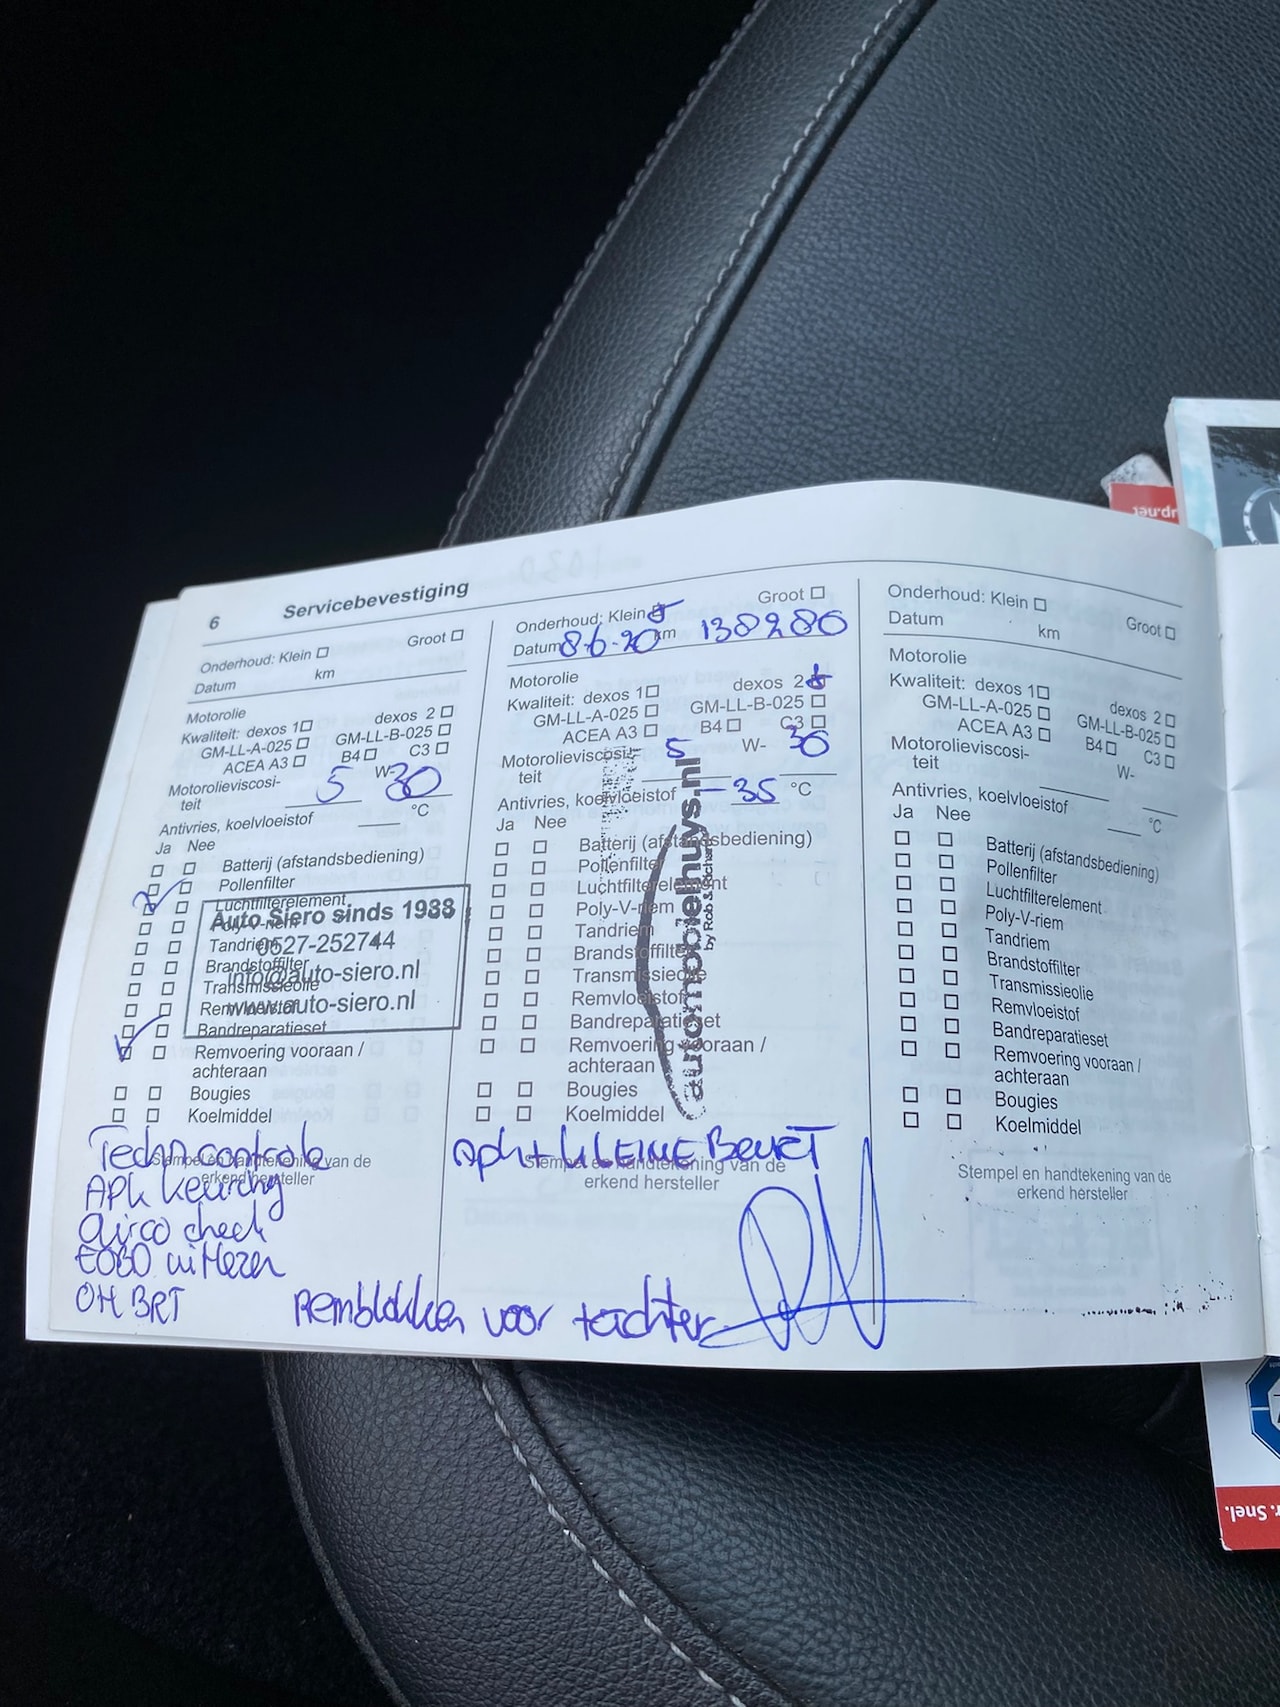 6 Servicebevestiging
Onderhoud: Klein Groot
Datum km
Motorolie
Kwaliteit: dexos 1 dexos 2
GM-LL-A-025 GM-LL-B-025
ACEA A3 B4 C3
Motorolieviscosi-
teit 5 W- 30
Antivries, koelvloeistof °C
Ja Nee
Batterij (afstandsbediening)
Pollenfilter
Luchtfilterelement
Poly-V-riem
Tandriem
Brandstoffilter
Transmissieolie
Remvloeistof
Bandreparatieset
Remvoering vooraan /
achteraan
Bougies
Koelmiddel
Auto Siero sinds 1988
0527-252744
info@auto-siero.nl
www.auto-siero.nl
Stempel en handtekening van de
erkend hersteller
Techn controle
APk keuring
Airco check
EOBD uitlezen
OH BRT
Onderhoud: Klein Groot
Datum 8-6-20 km 138280
Motorolie
Kwaliteit: dexos 1 dexos 2
GM-LL-A-025 GM-LL-B-025
ACEA A3 B4 C3
Motorolieviscosi-
teit 5 W- 30
Antivries, koelvloeistof -35 °C
Ja Nee
Batterij (afstandsbediening)
Pollenfilter
Luchtfilterelement
Poly-V-riem
Tandriem
Brandstoffilter
Transmissieolie
Remvloeistof
Bandreparatieset
Remvoering vooraan /
achteraan
Bougies
Koelmiddel
automobielhuys.nl
by Rob & Richard
Apk + KLEINE BEURT
Stempel en handtekening van de
erkend hersteller
Remblokken voor + achter
Onderhoud: Klein Groot
Datum km
Motorolie
Kwaliteit: dexos 1 dexos 2
GM-LL-A-025 GM-LL-B-025
ACEA A3 B4 C3
Motorolieviscosi-
teit W-
Antivries, koelvloeistof °C
Ja Nee
Batterij (afstandsbediening)
Pollenfilter
Luchtfilterelement
Poly-V-riem
Tandriem
Brandstoffilter
Transmissieolie
Remvloeistof
Bandreparatieset
Remvoering vooraan /
achteraan
Bougies
Koelmiddel
Stempel en handtekening van de
erkend hersteller
Snel.